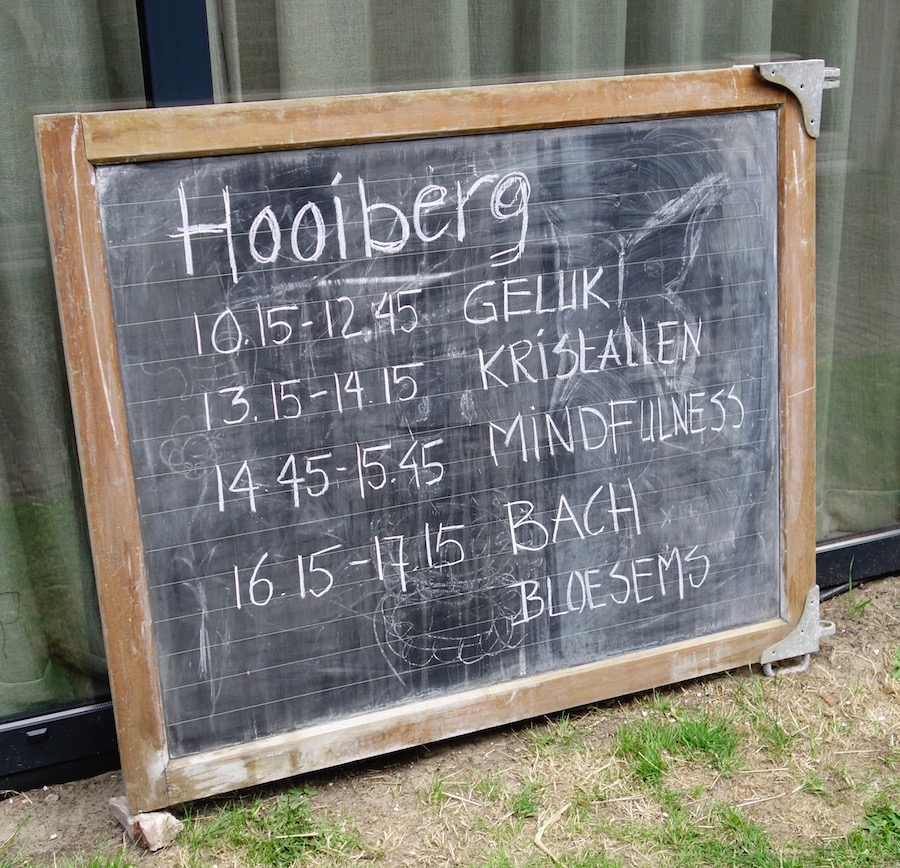 Hooiberg
10.15-12.45 GELUK!
13.15-14.15 KRiStALLEN
14.45-15.45 MiNDFULNESS
16.15-17.15 BACH
BLOESEMS